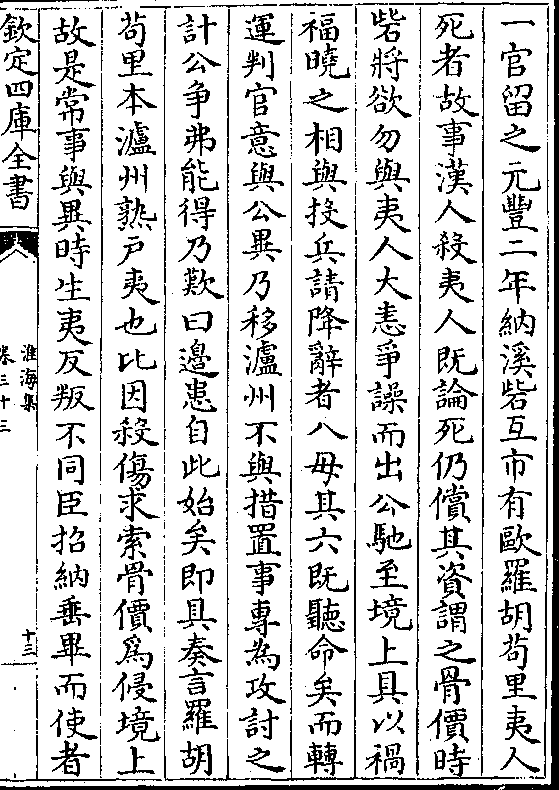 一官留之元豐二年納溪砦互市有歐羅胡茍里夷人
死者故事漢人殺夷人既論死仍償其資謂之骨價時
砦將欲勿與夷人大恚爭譟而出公馳至境上具以禍
福曉之相與投兵請降辭者八毋其六既聽命矣而轉
運判官意與公異乃移瀘州不與措置事專為攻討之
計公争弗能得乃歎曰邊患自此始矣即具奏言羅胡
茍里本瀘州熟户夷也比因殺傷求索骨價為侵境上
故是常事與異時生夷反叛不同臣招納垂畢而使者
欽定四庫全書
淮海集
卷三十三
十三